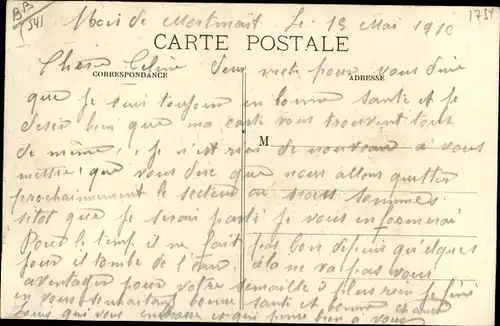 BB
541
Bois de Le 15 Mai 1910
1751
CARTE POSTALE
CORRESPONDANCE
ADRESSE
M
Cher Deux mots pour vous dire
que je suis toujour en bonne santé et je
desir bien que ma carte vous trouvent tous
de même, je n'est rien de nouveau a vous
mettre, que vous dire que nous allons quitter
prochainnement le secteur ou nous sommes
sitot que je serai parti je vous enformerai
Pour le temp il ne fait pas bon depuis quelques
jour il tombe de l'eau, cela ne va pas vous
aventager pour votre semaille plus rien je finis
en vous souhaitant bonne santé et bonne chance
qui vous embrasse et qui pense bien à vous